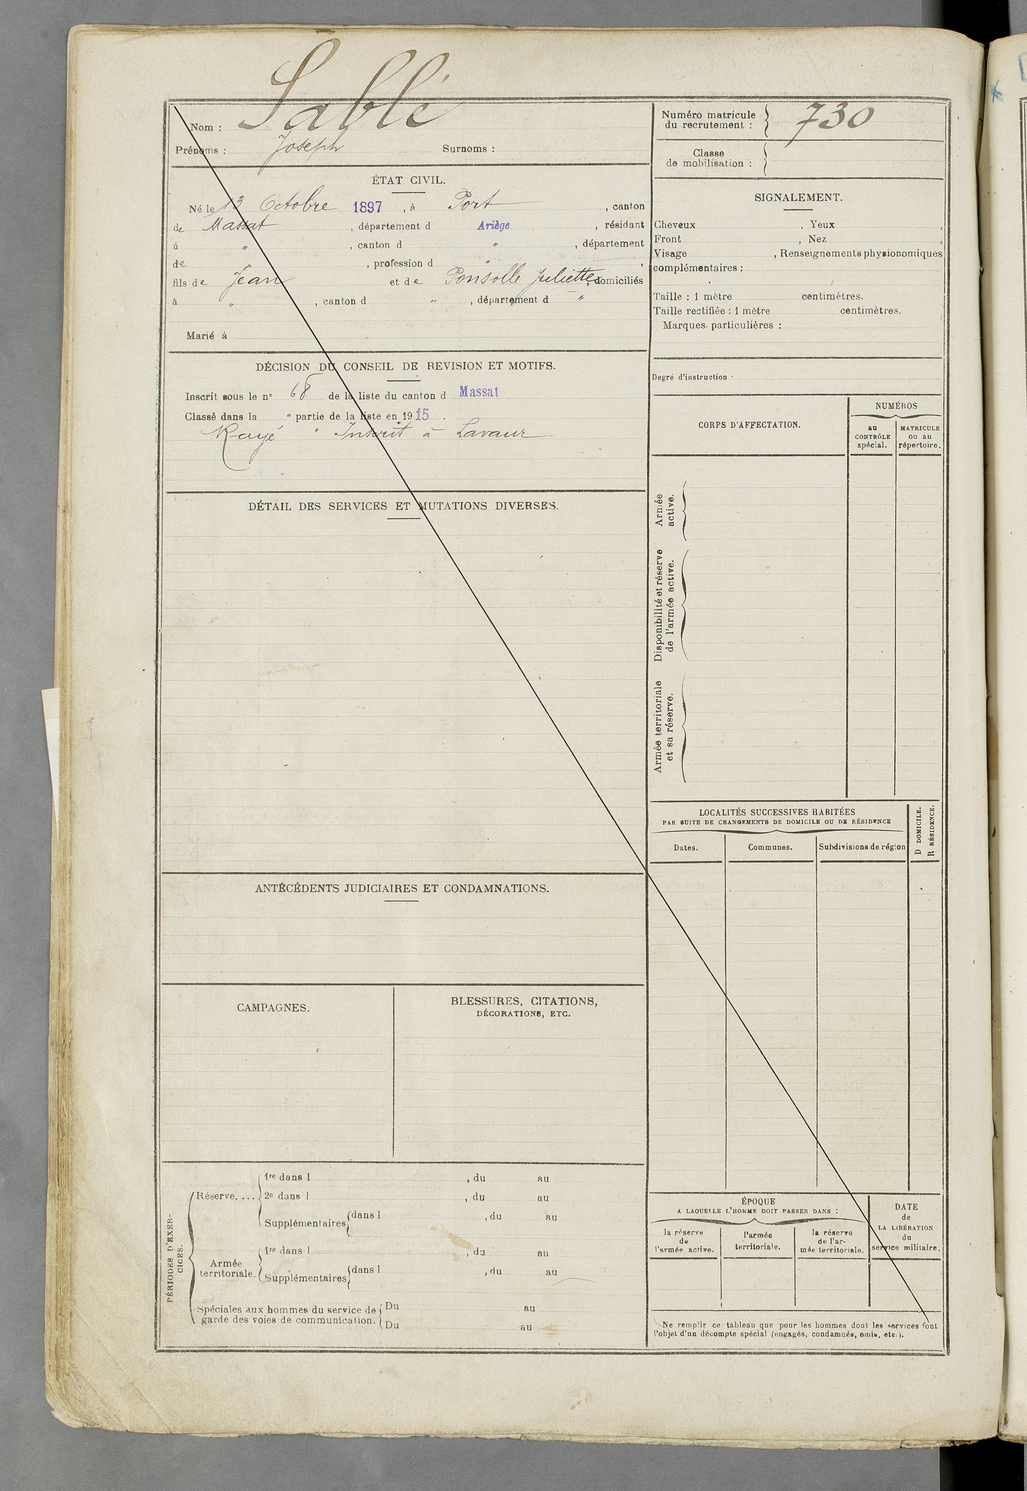 Sablé
Nom :
Prénoms : Joseph Surnoms :
Numéro matricule
du recrutement : 730
Classe
de mobilisation :
ÉTAT CIVIL.
Né le 13 Octobre 1897 , à Port , canton
de Massat , département d Ariège , résidant
à " , canton d " , département
de " , profession d "
fils de Jean et de Ponsolle Juliette , domiciliés
à " , canton d " , département d "
Marié à
SIGNALEMENT.
Cheveux , Yeux ,
Front , Nez ,
Visage , Renseignements physionomiques
complémentaires :
Taille : 1 mètre centimètres.
Taille rectifiée : 1 mètre centimètres.
Marques particulières :
Degré d'instruction
DÉCISION DU CONSEIL DE REVISION ET MOTIFS.
Inscrit sous le n° 68 de la liste du canton d Massat
Classé dans la " partie de la liste en 1915 .
Rayé " Inscrit à Lavaur
CORPS D'AFFECTATION.
NUMÉROS
au
CONTRÔLE
spécial.
MATRICULE
ou au
répertoire.
Armée
active.
Disponibilité et réserve
de l'armée active.
Armée territoriale
et sa réserve.
DÉTAIL DES SERVICES ET MUTATIONS DIVERSES.
LOCALITÉS SUCCESSIVES HABITÉES
PAR SUITE DE CHANGEMENTS DE DOMICILE OU DE RÉSIDENCE
D DOMICILE.
R RÉSIDENCE.
Dates. Communes. Subdivisions de région
ANTÉCÉDENTS JUDICIAIRES ET CONDAMNATIONS.
CAMPAGNES.
BLESSURES, CITATIONS,
DÉCORATIONS, ETC.
PÉRIODES D'EXER-
CICES.
Réserve. ...
1re dans l , du au
2e dans l , du au
Supplémentaires dans l , du au
Armée
territoriale.
1re dans l , du au
Supplémentaires dans l , du au
Spéciales aux hommes du service de
garde des voies de communication.
Du au
Du au
ÉPOQUE
A LAQUELLE L'HOMME DOIT PASSER DANS :
la réserve
de
l'armée active.
l'armée
territoriale.
la réserve
de l'ar-
mée territoriale.
DATE
de
LA LIBÉRATION
du
service militaire.
Ne remplir ce tableau que pour les hommes dont les services font
l'objet d'un décompte spécial (engagés, condamnés, omis, etc.).